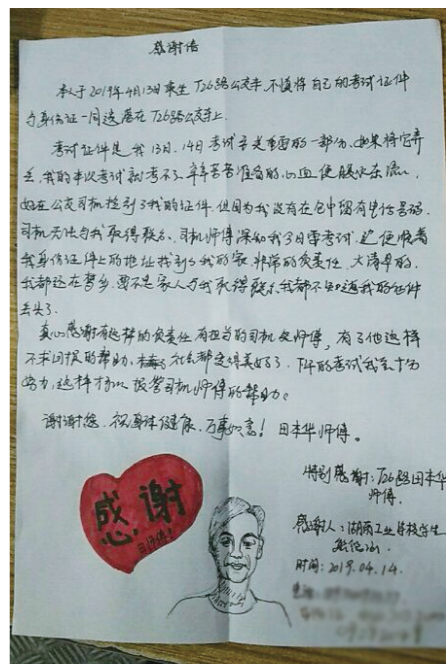 感谢信
本人于2019年4月13日乘坐T26路公交车,不慎将自己的考试证件
与身份证一同遗落在T26路公交车上。
考试证件是我13日、14日考试至关重要的一部分,如果将它弃
丢,我的本次考试就考不了,辛辛苦苦准备的心血便服水东流,
好在公交司机捡到了我的证件,但因为我没有在包中留有电话号码,
司机无法与我取得联系,司机师傅深知我今日需考试,便顺着
我身份证件上的地址找到了我的家,非常的负责任,大清早的,
我都还在梦乡,要不是家人与我取得联系我都不知道我的证件
丢失了。
真心感谢有这样的负责任有担当的司机师傅,有了他这样
不求回报的帮助,社会都变得美好了,下午的考试我会十分
努力,这样才可以报答司机师傅的帮助。
谢谢您,祝身体健康,万事如意!田本华师傅。
感谢
特别感谢:T26路田本华
师傅。
感谢人:湖南工业学校学生
时间:2019.04.14.